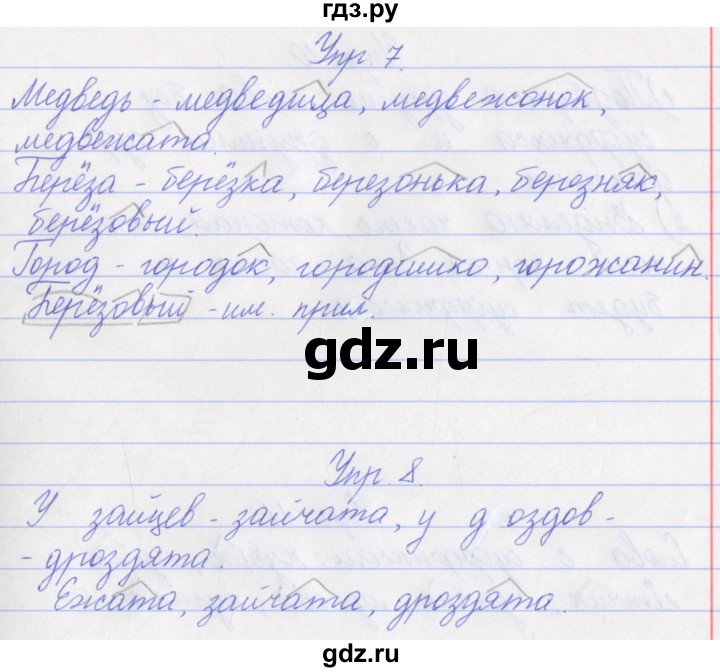 гдз.ру
Упр. 7.
Медведь - медведица, медвежонок,
медвежата.
Берёза - берёзка, березонька, березняк,
берёзовый.
Город - городок, городишко, горожанин.
Берёзовый - им. прил.
gdz.ru
Упр. 8.
У зайцев - зайчата, у д оздов -
- дроздята.
Ежата, зайчата, дроздята.